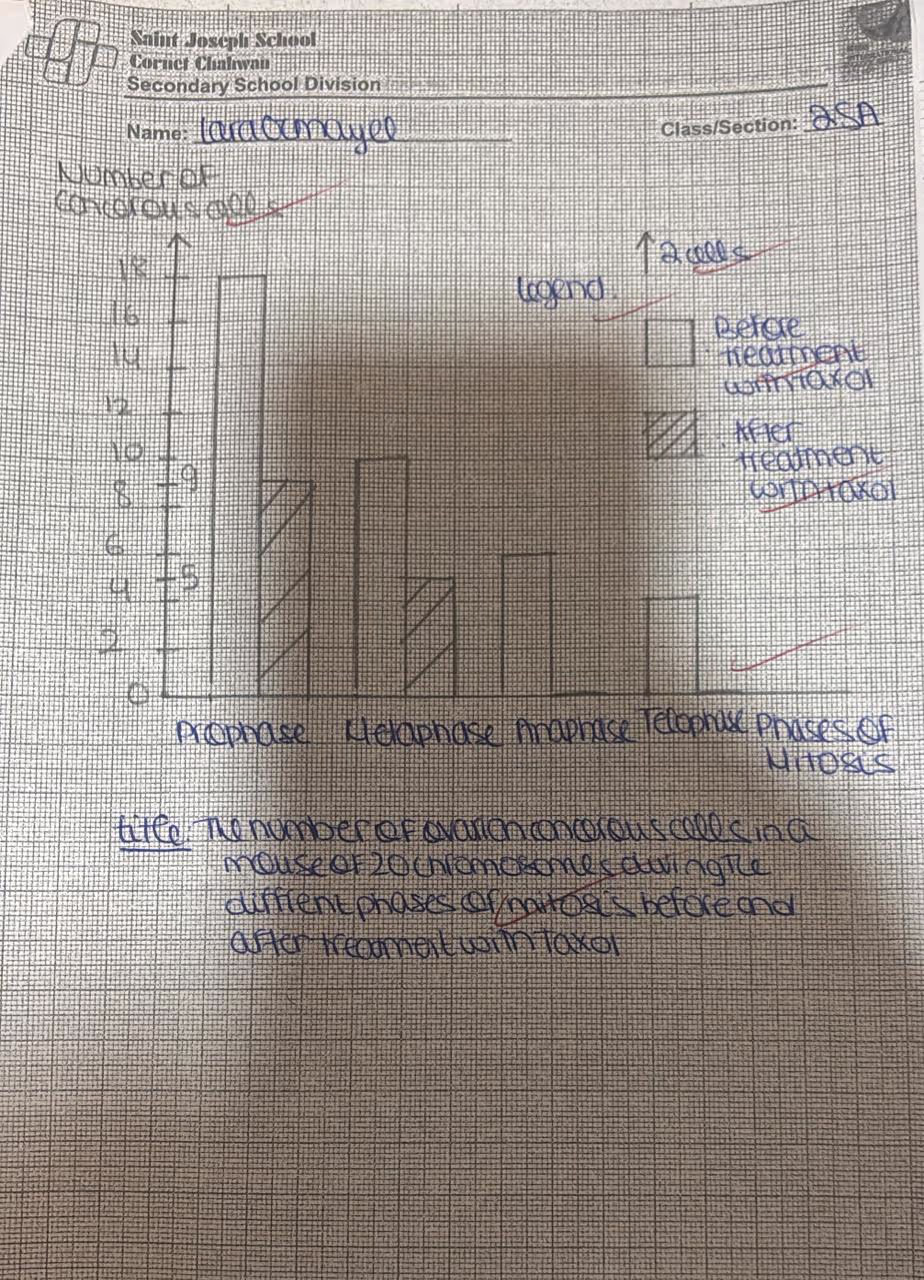 Saint Joseph School
Cornet Chahwan
Secondary School Division
Name:
Class/Section: 2SA
Number of
cancerous cells
↑ 2 cells
legend.
Before
treatment
with taxol
After
treatment
with taxol
18
16
14
12
10
9
8
6
5
4
2
0
Prophase Metaphase Anaphase Telophase Phases of
Mitosis
title: The number of ovarian cancerous cells in a
mouse of 20 chromosomes during the
diffient phases of mitosis before and
after treatment with Taxol